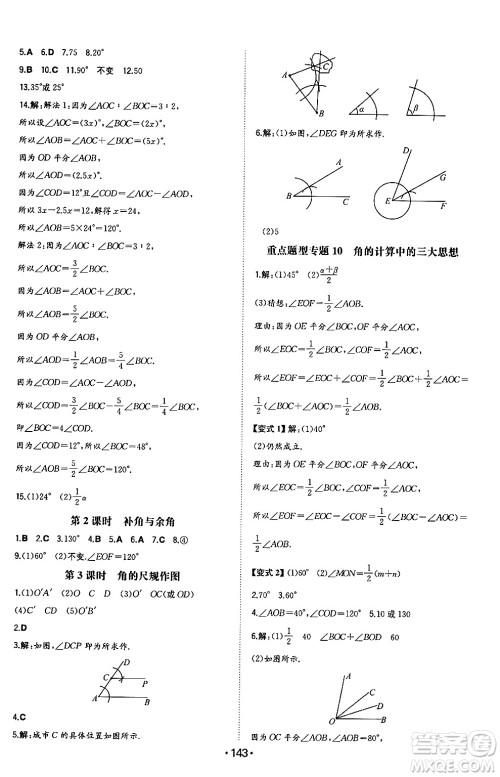 5.A  6.D  7.75  8.20°
9.B  10.C  11.90°  不变  12.50
13.35°或25°
14.解:解法1:因为∠AOC∶∠BOC=3∶2,
所以设∠AOC=(3x)°,∠BOC=(2x)°,
所以∠AOB=∠AOC+∠BOC=(5x)°.
因为OD平分∠AOB,
所以∠AOD=(2.5x)°.
因为∠COD=12°且∠COD=∠AOC-∠AOD,
所以3x-2.5x=12,解得x=24.
所以∠AOB=5×24°=120°.
解法2:因为∠AOC∶∠BOC=3∶2,
所以∠AOC=3/2∠BOC,
所以∠AOB=5/2∠BOC.
因为OD平分∠AOB,
所以∠AOD=1/2∠AOB=5/4∠BOC.
因为∠COD=∠AOC-∠AOD,
所以∠COD=3/2∠BOC-5/4∠BOC=1/4∠BOC,
即∠BOC=4∠COD.
因为∠COD=12°,所以∠BOC=48°,
所以∠AOB=5/2∠BOC=120°.
15.(1)24°  (2)1/2α
第2课时  补角与余角
1.B  2.A  3.D  4.C  5.A  6.C  7.C  8.④
9.(1)60°  (2)不变.∠EOF=130°.
第3课时  角的尺规作图
1.(1)O'A'  (2)O  OA  OB  (3)O'  OC
(4)C'  CD  (5)O'B'
2.D
3.解:如图,∠DCP即为所求作.
D
C P
A B
4.C
5.解:城市C的具体位置如图所示.
C
A
B α β
6.解:(1)如图,∠DEG即为所求作.
A D G
B C E F
(2)5
重点题型专题10  角的计算中的三大思想
1.解:(1)45°  (2)(α+β)/2
(3)猜想:∠EOF=1/2∠AOB.
理由:因为OE平分∠BOC,OF平分∠AOC,
所以∠EOC=1/2∠BOC,∠COF=1/2∠AOC,
所以∠EOF=∠EOC+∠COF=1/2∠BOC+1/2∠AOC
=1/2∠AOB.
【变式1】解:(1)40°
(2)仍然成立.
理由:因为OE平分∠BOC,OF平分∠AOC,
所以∠EOC=1/2∠BOC,∠COF=1/2∠AOC,
所以∠EOF=∠EOC-∠COF=1/2∠BOC-1/2∠AOC
=1/2∠AOB.
【变式2】解:(1)60°  (2)∠MON=1/2(m+n)
2.70°  3.60°  4.70°
5.解:∠AOB=40°,∠COD=60°.
6.解:(1)1/2  40  1/2  ∠BOD  60
(2)如图所示.
D C
B
O A
因为OC平分∠AOD,
·143·